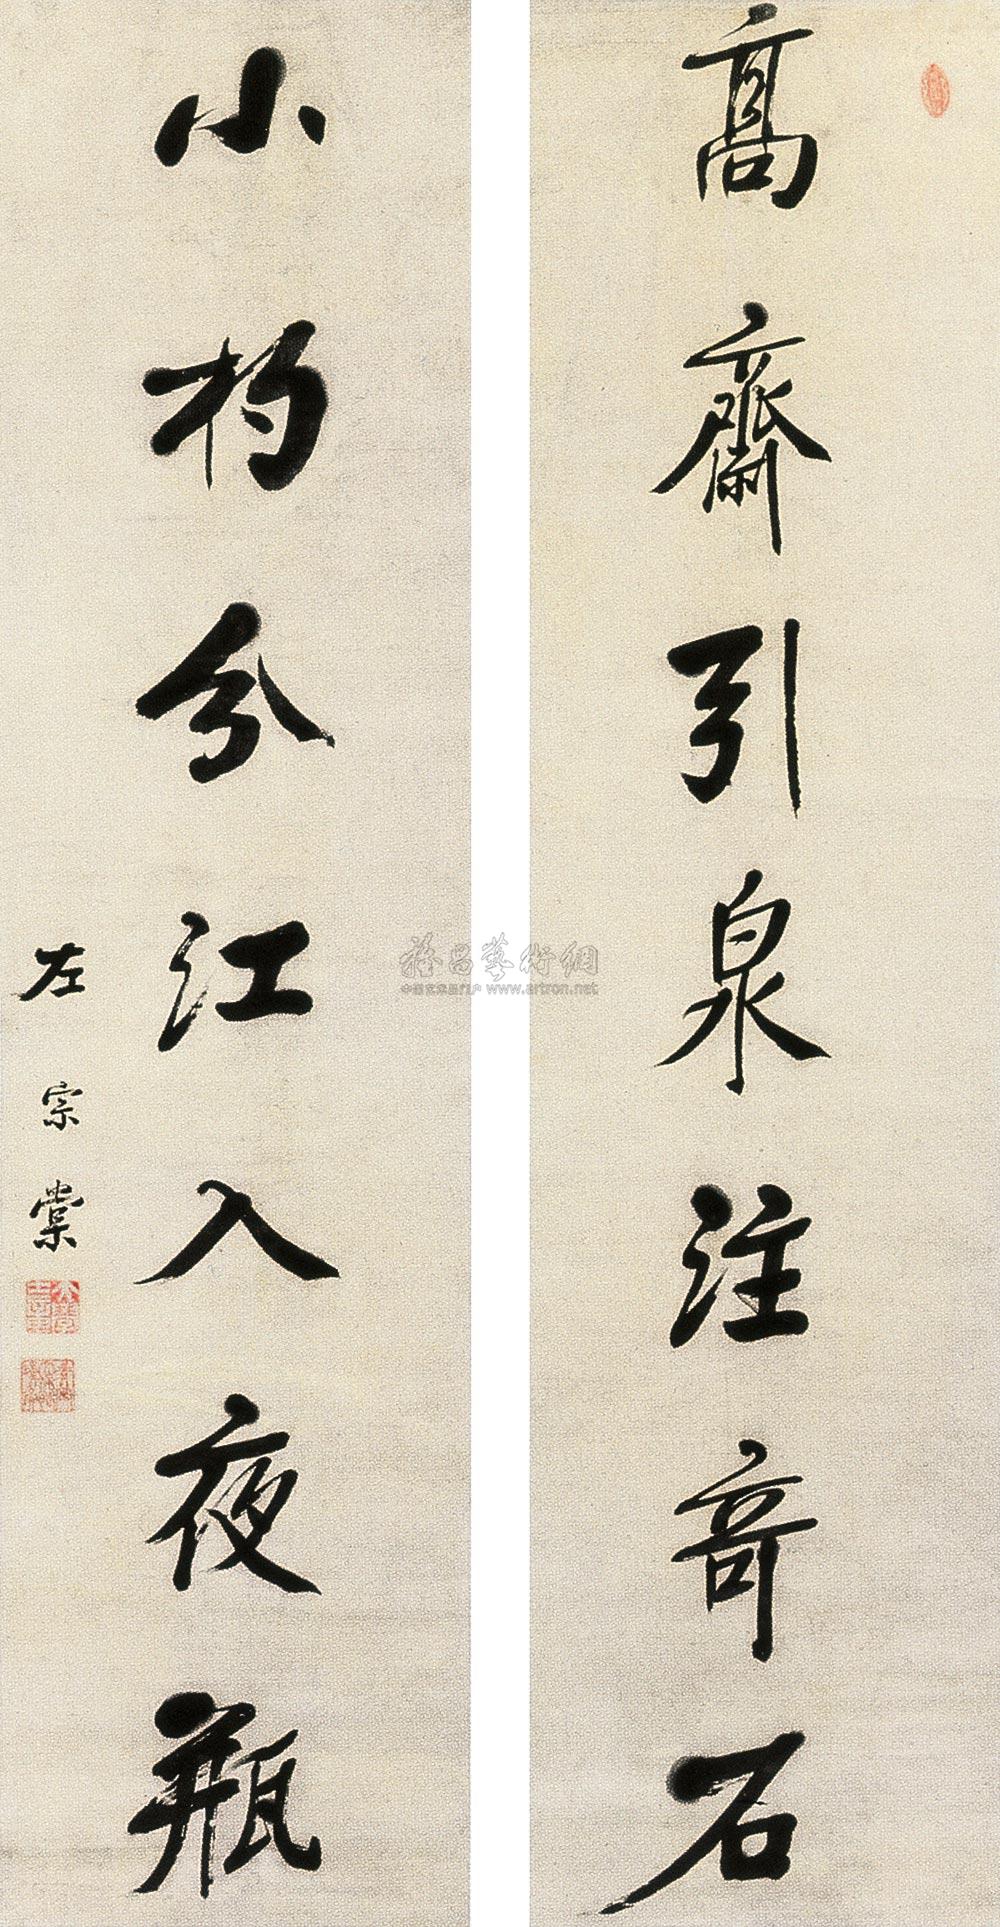 高齋引泉注奇石
小杓分江入夜瓶
左宗棠
雅昌藝術網
中国艺术品门户 www.artron.net